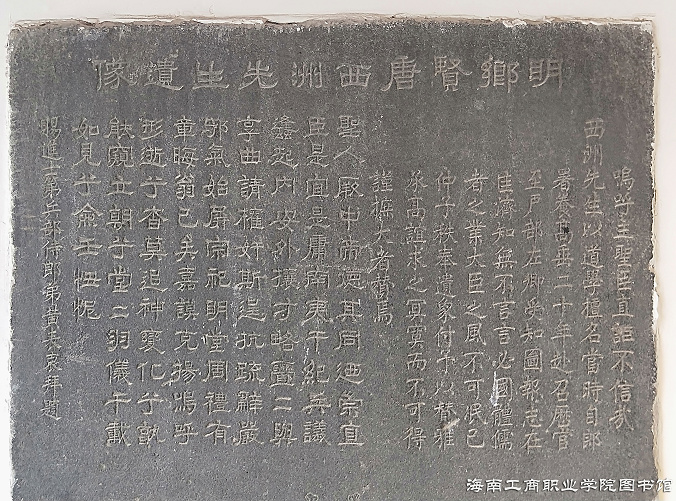 明鄉賢唐西洲先生遺像
嗚呼主聖臣直詎不信哉
西洲先生以道學擅名當時自郎
署養高垂二十年赴召歷官
至戶部左卿受知圖報志在
匡濟知無不言言必國體儒
者之業大臣之風不可泯已
仲子秩奉遺象付予以贊雅
承高誼求之冥寞而不可得
謹撫大者贊焉
聖人 中 其同 直
臣是宜是庸南夷干紀兵議
蠭起內安外攘才略 二輿
享曲請權奸斯 抗疏 嚴
邪氣始 宗祀明堂周禮有
童晦翁已矣嘉謨克揚嗚呼
形逝兮杳莫追神變化兮
窺立朝兮堂二羽儀千載
如見兮 壬忸怩
賜進士第兵部侍郎弟黃 衷拜題
海南工商职业学院图书馆